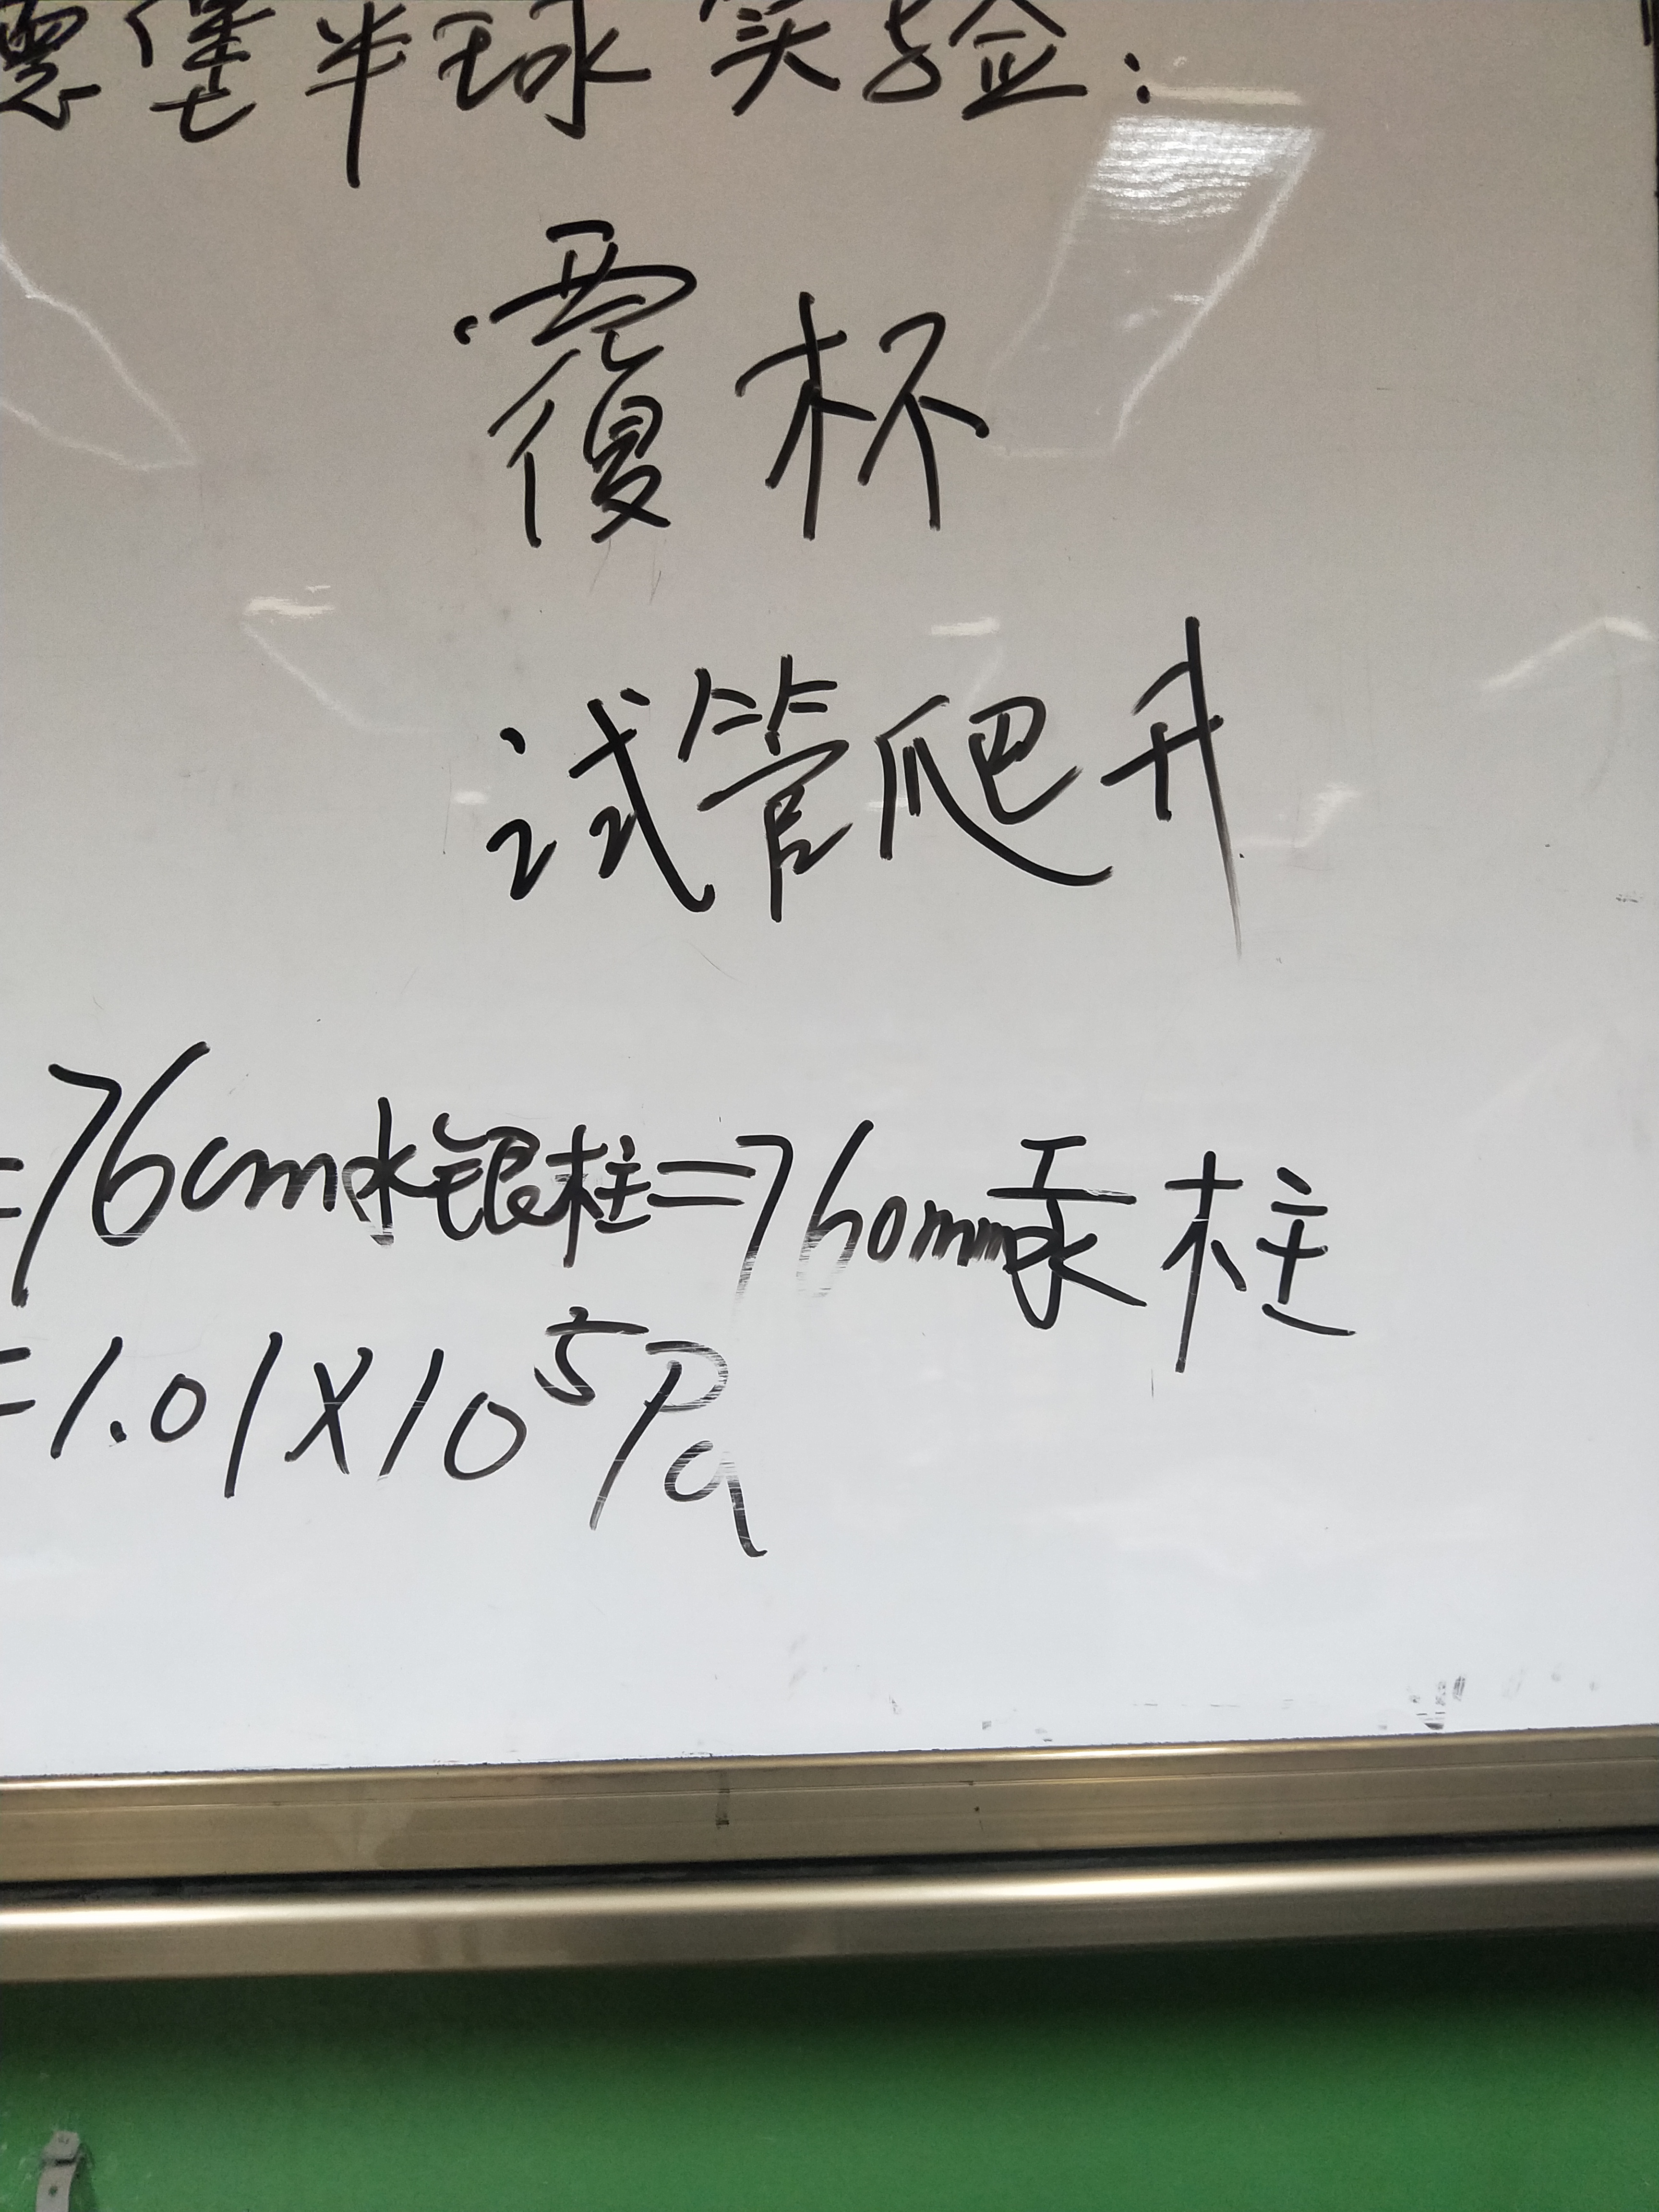 德堡半球实验:
覆杯
试管爬升
=76cm水银柱=760mm汞柱
=1.01×10⁵Pa